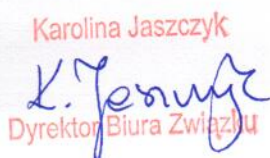 Karolina Jaszczyk
Dyrektor Biura Związku